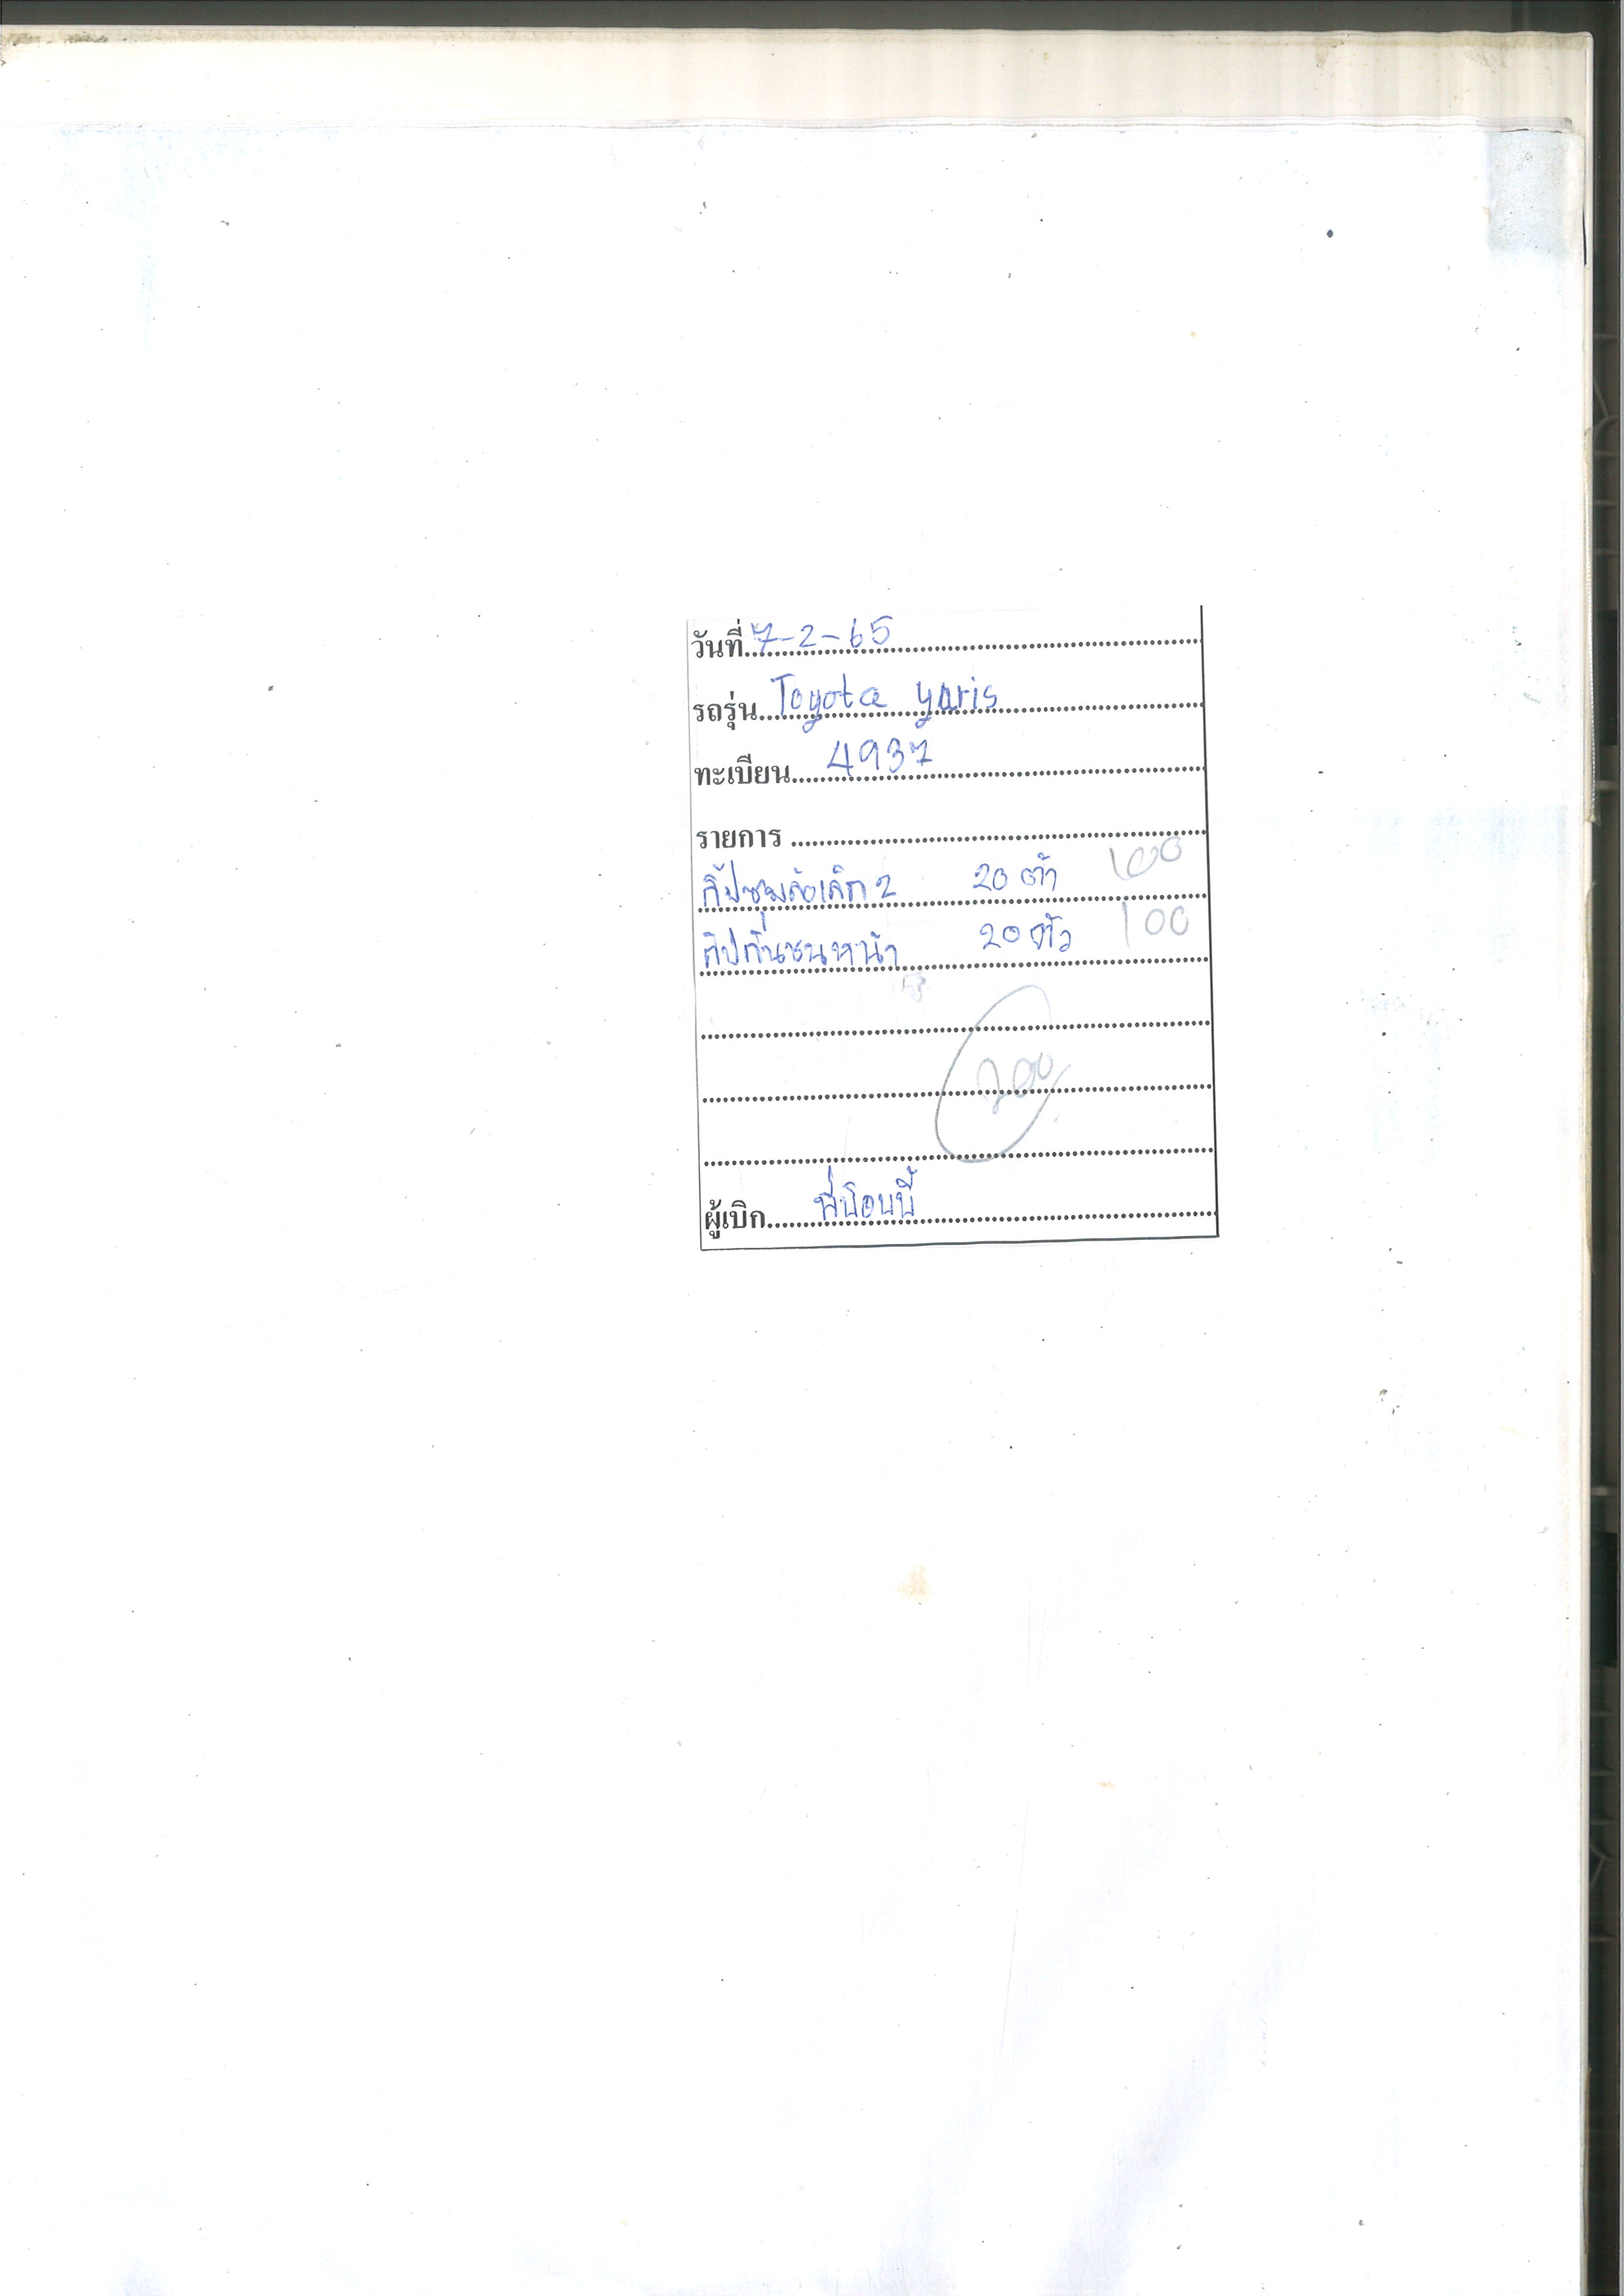 วันที่ 7-2-65
รถรุ่น Toyota yaris
ทะเบียน 4937
รายการ
กิ๊ปซุ้มล้อเล็ก 2 20 ตัว 100
กิ๊ปกันชนหน้า 20 ตัว 100
200
ผู้เบิก